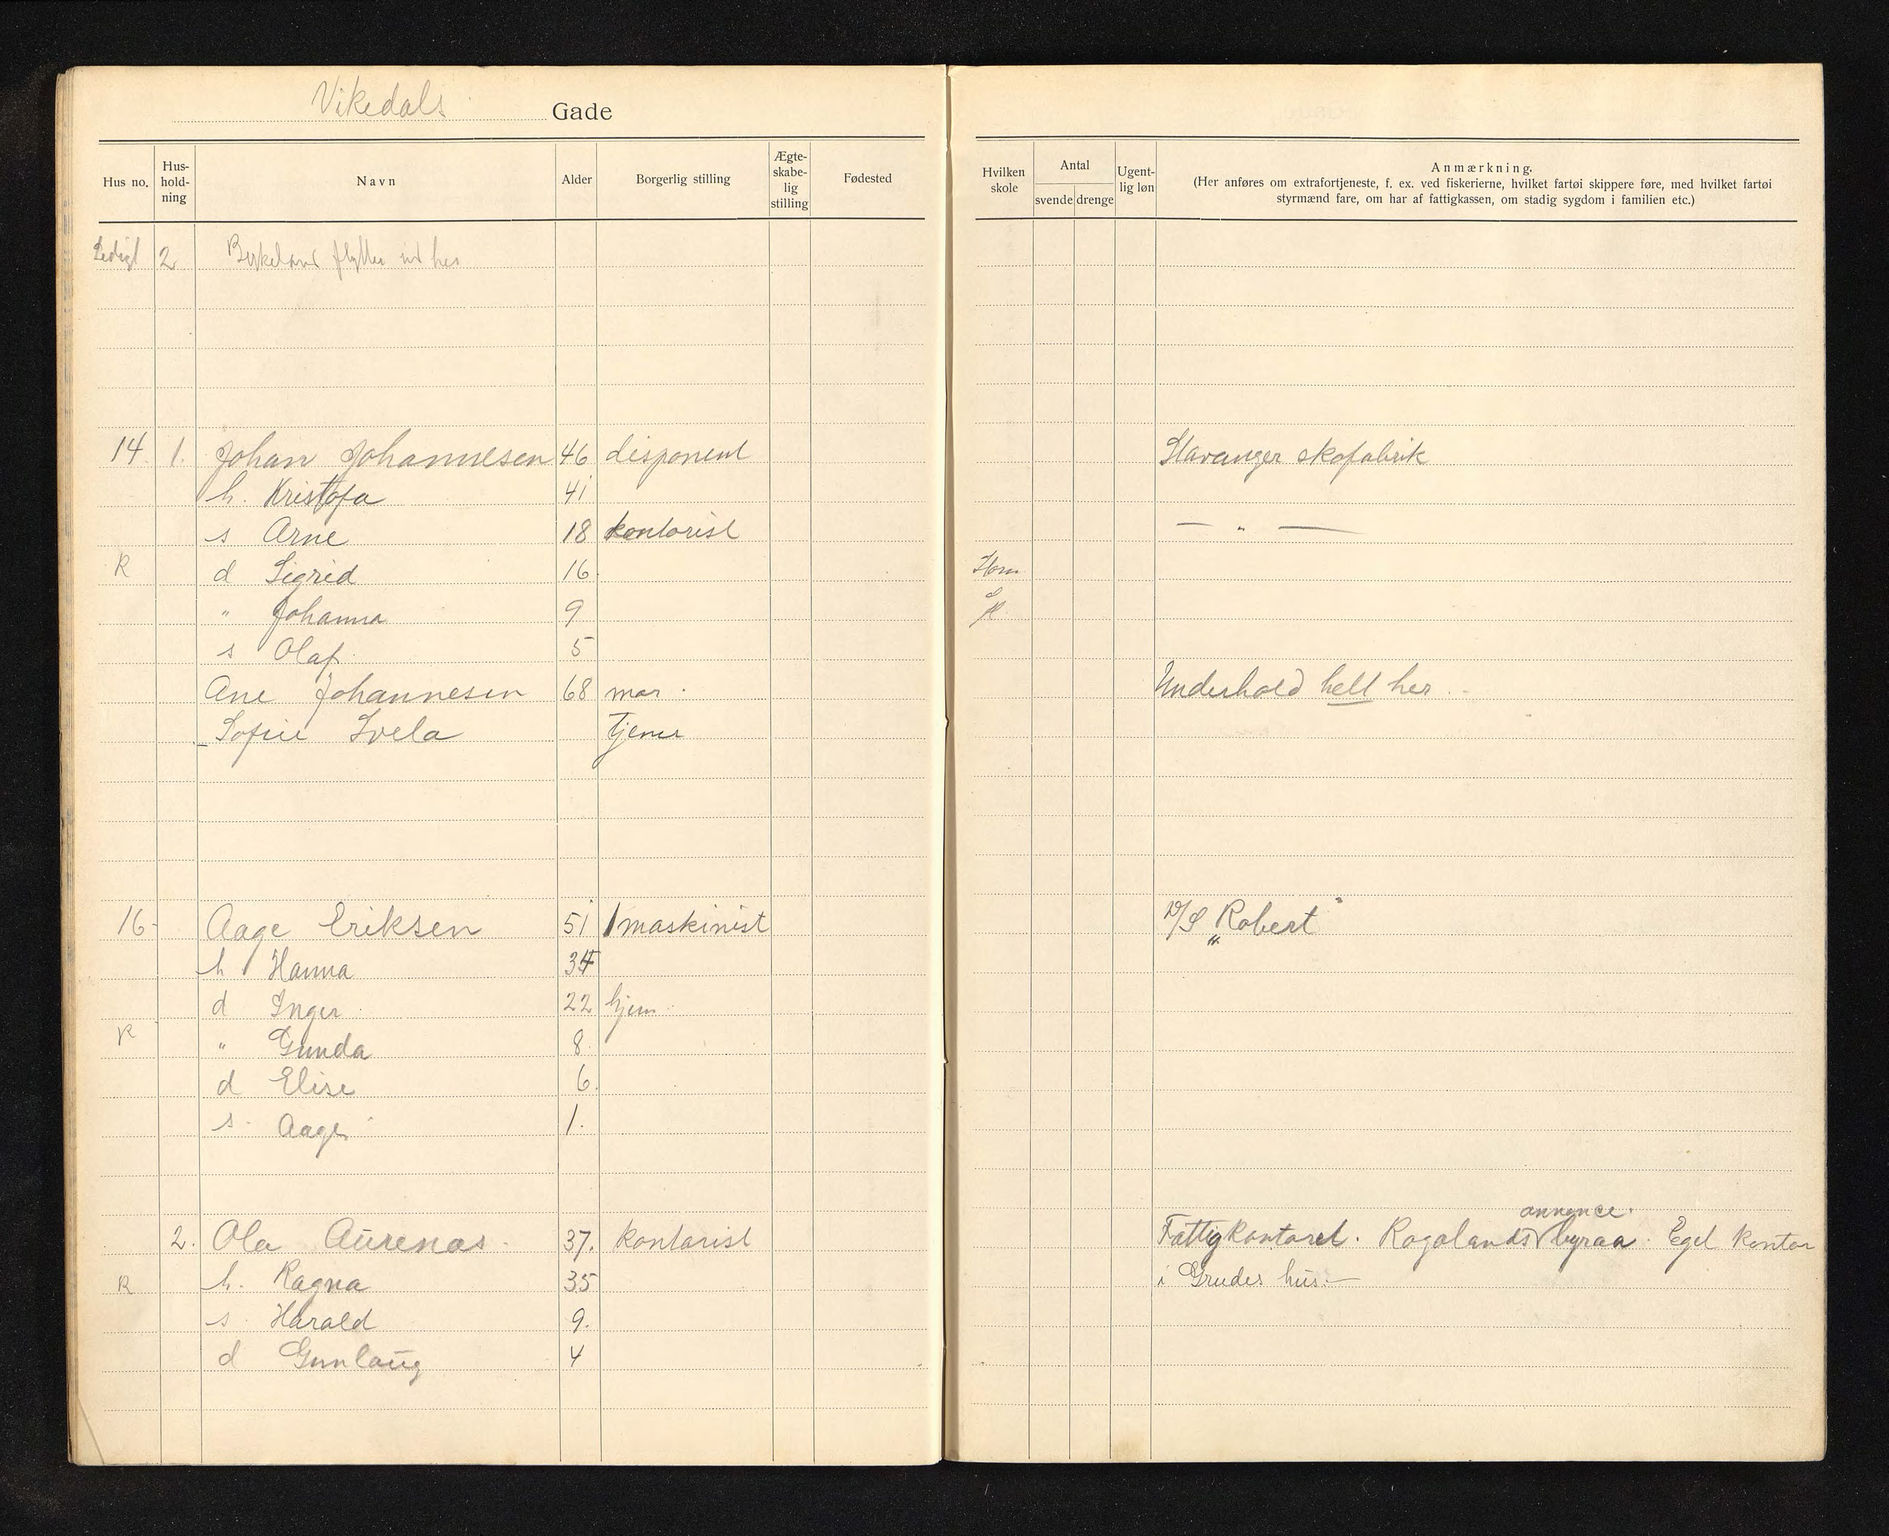 Vikedals Gade
Hus no. Hus-hold-ning Navn Alder Borgerlig stilling Ægte-skabe-lig stilling Fødested
Hvilken skole Antal svende drenge Ugent-lig løn Anmærkning.
(Her anføres om extrafortjeneste, f. ex. ved fiskerierne, hvilket fartøi skippere føre, med hvilket fartøi
styrmænd fare, om har af fattigkassen, om stadig sygdom i familien etc.)
Ledigt 2 Birkeland flytter ind her
14 1. Johan Johannesen 46 disponent Stavanger skofabrik
h. Kristofa 41
s Arne 18 kontorist — " —
R d Sigrid 16
" Johanna 9
s Olaf 5
Ane Johannesen 68 mor Underhold helt her
Sofie Svela Tjener
16 Aage Eriksen 51 1 maskinist D/S „Robert"
h Hanna 34
d Inger 22 hjem
R " Gunda 8
d Elise 6
s. Aage 1.
2. Ola Aurenas 37. kontorist Fattigkontoret. Rogalands annonce byraa. Eget kontor
R h. Ragna 35 i Grudes hus.—
s Harald 9.
d Gunlaug 4